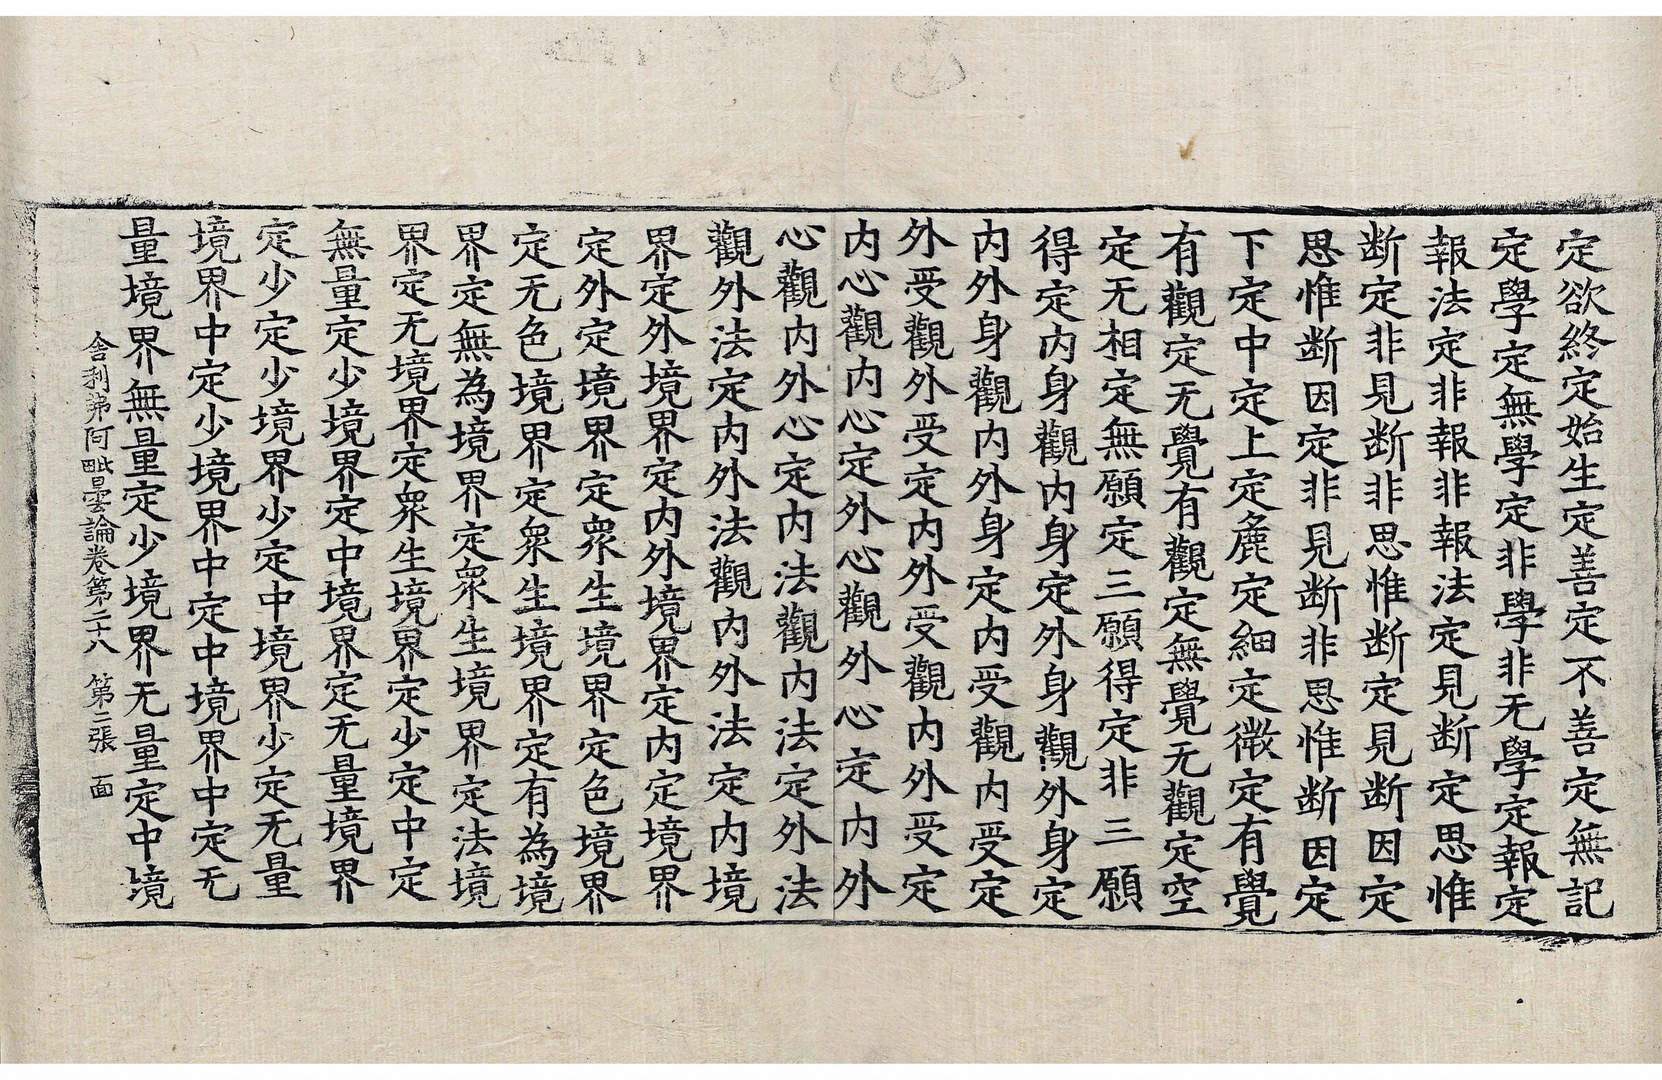 定欲終定始生定善定不善定無記
定學定無學定非學非无學定報定
報法定非報非報法定見断定思惟
断定非見断非思惟断定見断因定
思惟断因定非見断非思惟断因定
下定中定上定麁定細定微定有覺
有觀定无覺有觀定無覺无觀定空
定无相定無願定三願得定非三願
得定内身觀内身定外身觀外身定
内外身觀内外身定内受觀内受定
外受觀外受定内外受觀内外受定
内心觀内心定外心觀外心定内外
心觀内外心定内法觀内法定外法
觀外法定内外法觀内外法定内境
界定外境界定内外境界定内定境界
定外定境界定衆生境界定色境界
定无色境界定衆生境界定有為境
界定無為境界定衆生境界定法境
界定无境界定衆生境界定少定中定
無量定少境界定中境界定无量境界
定少定少境界少定中境界少定无量
境界中定少境界中定中境界中定无
量境界無量定少境界无量定中境
舍利弗阿毗曇論卷第二十八 第二張 面